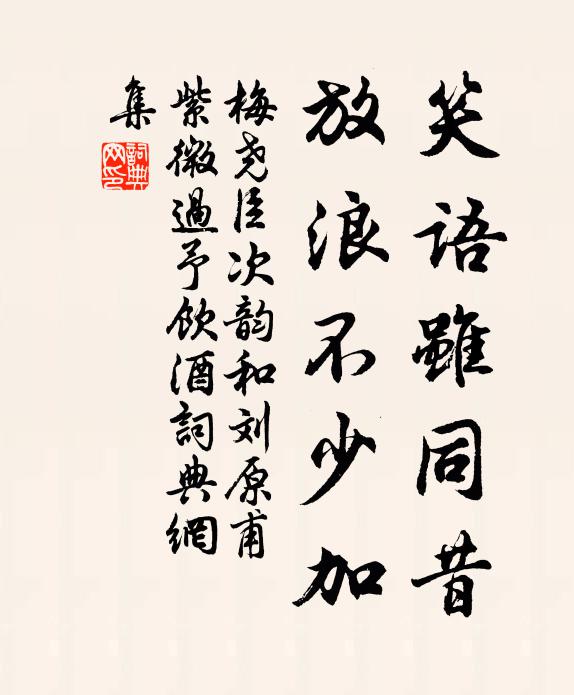 笑语雖同昔
放浪不少加
梅尧臣次韵和刘原甫
紫微過予飲酒詞典網
集
詞典
网印